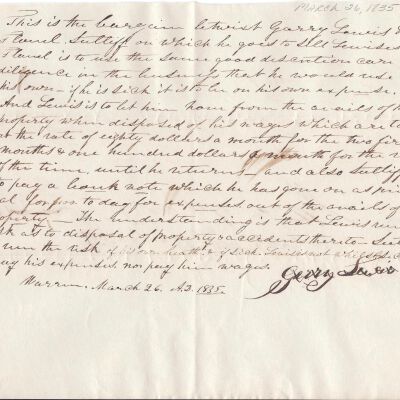 MARCH 26, 1835
This is the bargain betwixt Garry Lewis &
Flavel Sutliff on which he goes to Sell Lewises
Flavel is to use the same good discretion care
diligence in the business that he would use
his own - if he is sick it is to be on his own expense.
And Lewis is to let him have from the avails of h
property when disposed of his wages which are to
at the rate of eighty dollars a month for the two fir
months & one hundred dollars a month for the r
of the time, until he returns - and also Sutliff
to pay a bank note which he has gone on as
for to day for expenses out of the avails of
operty - The understanding is that Lewis run
sk as to disposal of property & accidents thereto Sut
run the risk of his own health & if sick Lewis is not
ay his expenses, nor pay him wages.
Garry Lewis
Warren, March 26. A.D. 1835.